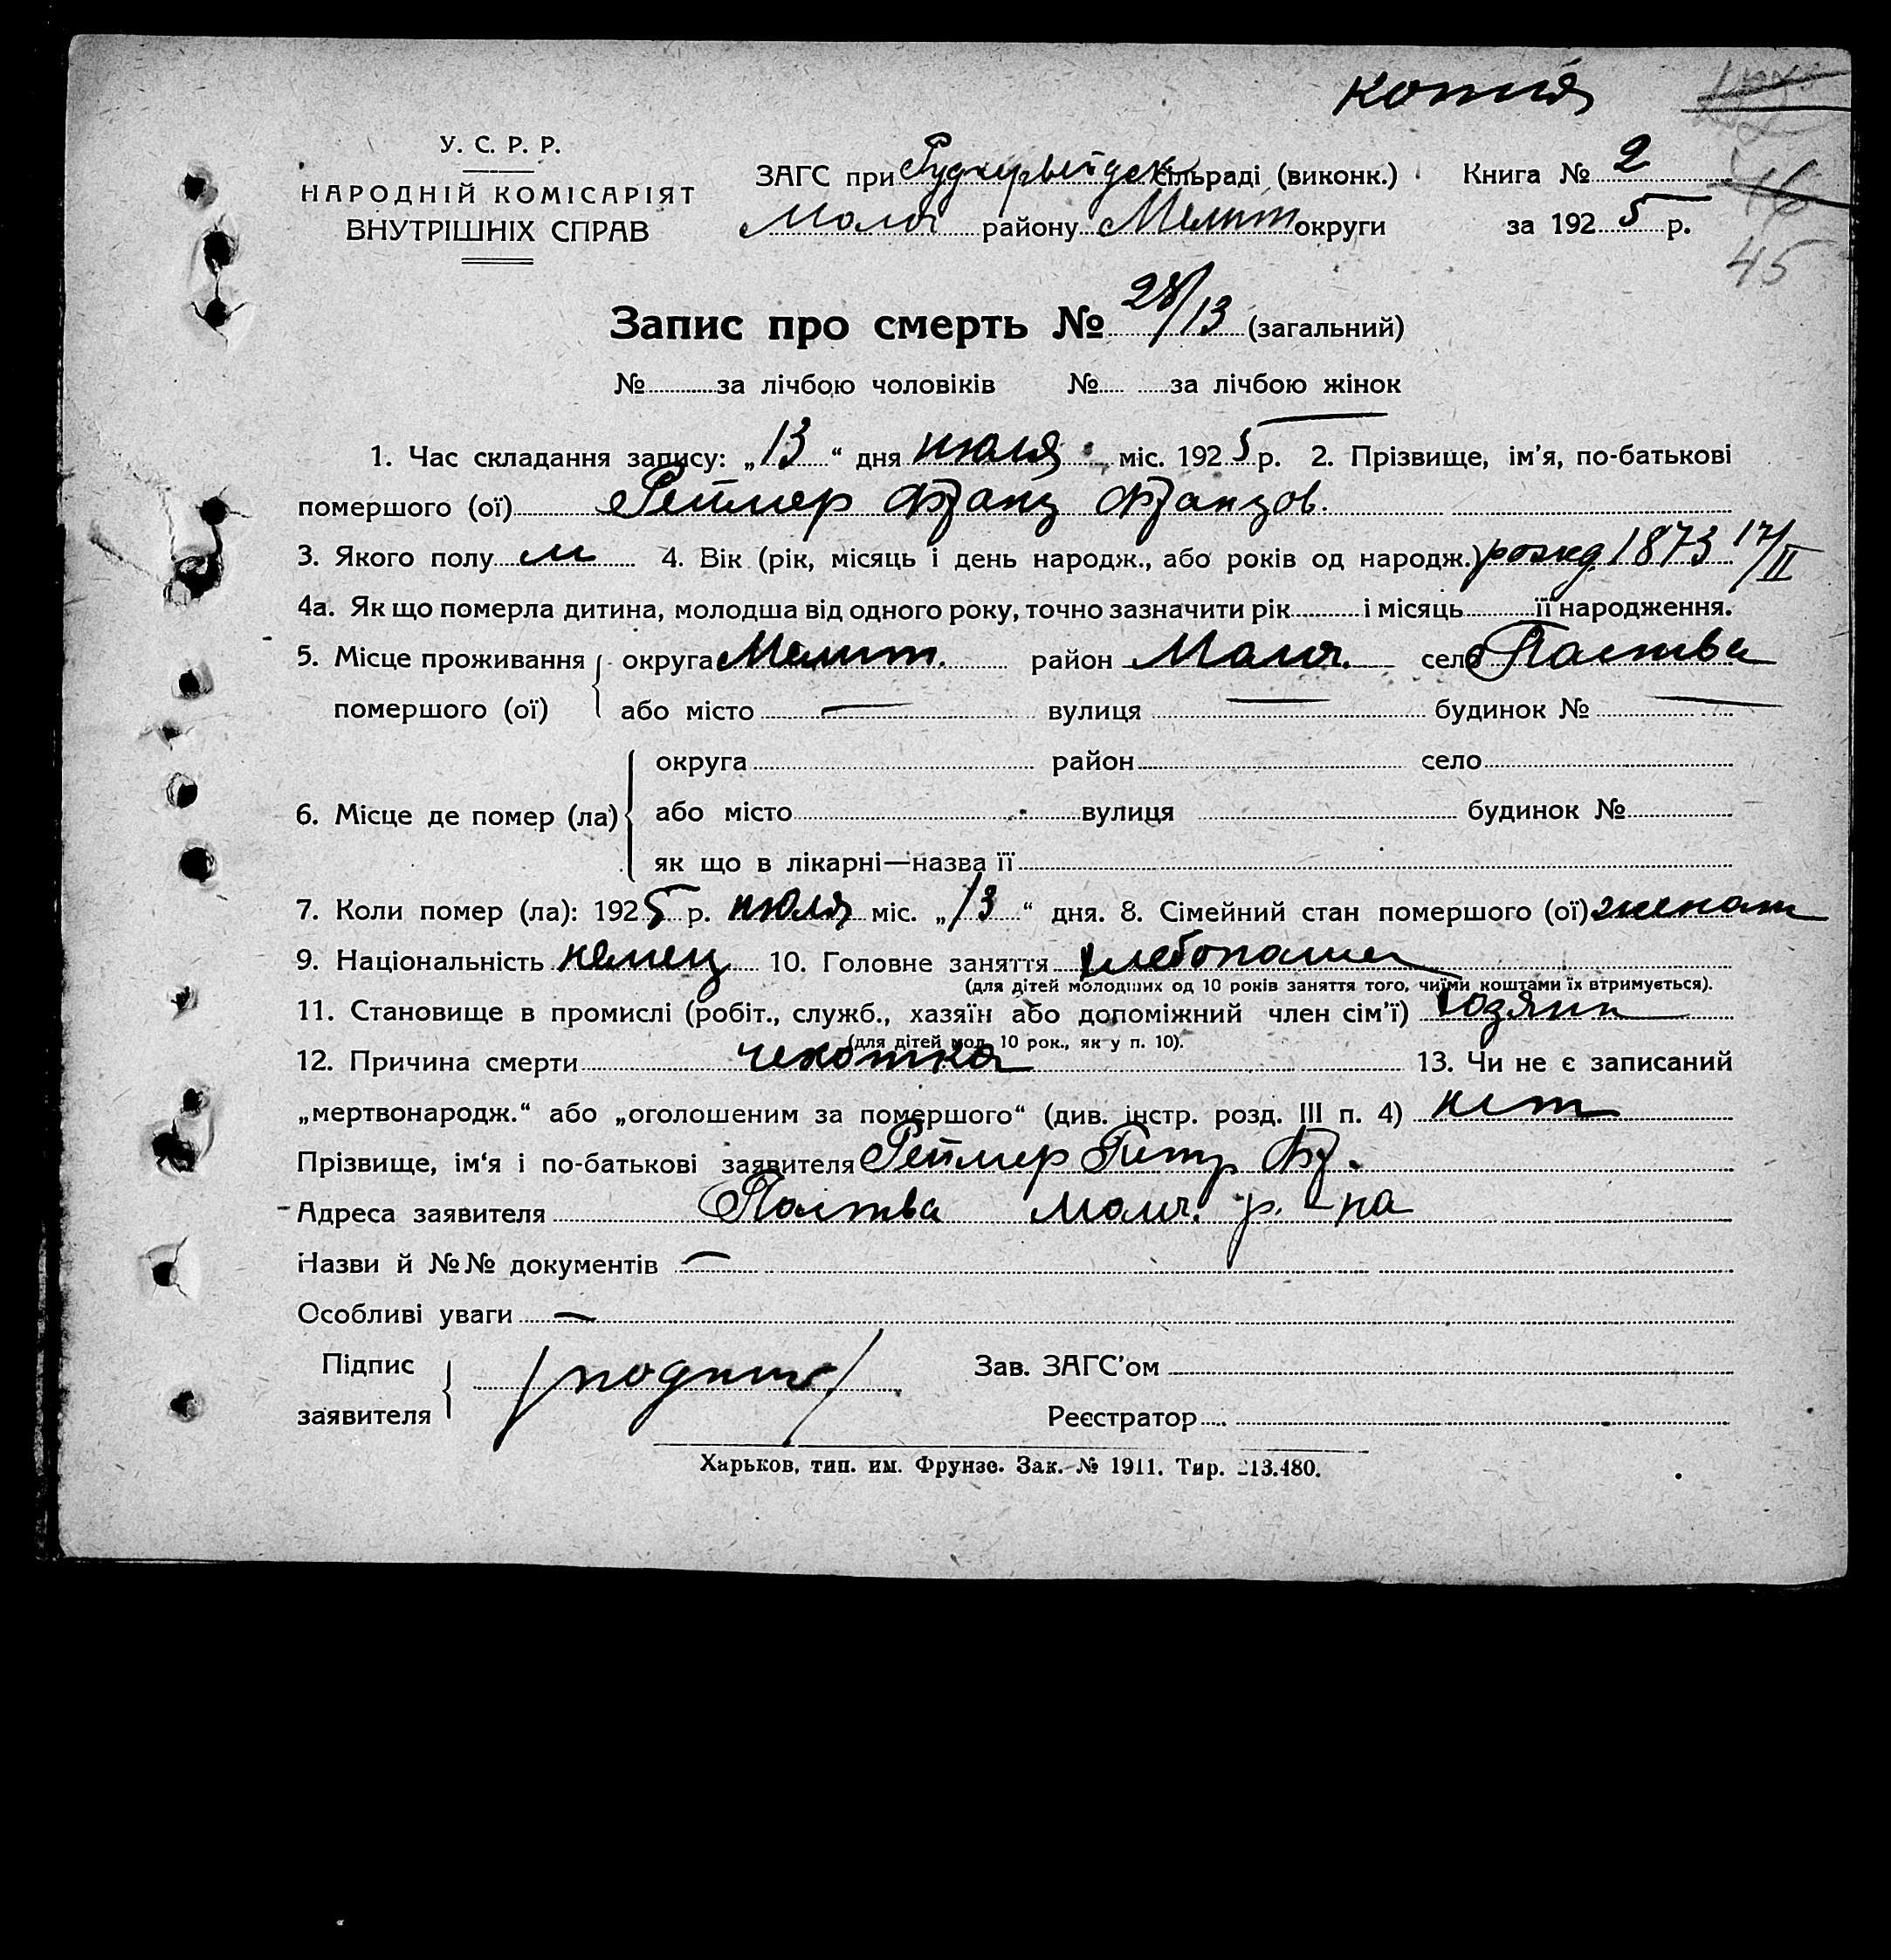 копия
У. С. Р. Р.
НАРОДНІЙ КОМІСАРІЯТ
ВНУТРІШНІХ СПРАВ
ЗАГС при Рудкервейдск сільраді (виконк.) Книга № 2
Молоч району Мелит округи за 1925 р.
16
45
Запис про смерть № 28/13 (загальний)
№ за лічбою чоловіків № за лічбою жінок
1. Час складання запису: „13“ дня июля міс. 1925 р. 2. Прізвище, ім'я, по-батькові
помершого (ої) Реймер Франц Францов.
3. Якого полу м 4. Вік (рік, місяць і день народж., або років од народж.) рожд. 1873 17/II
4а. Як що померла дитина, молодша від одного року, точно зазначити рік і місяць її народження.
5. Місце проживання округа Мелит. район Молоч. село Паства
помершого (ої) або місто — вулиця — будинок № —
округа район село
6. Місце де помер (ла) або місто вулиця будинок №
як що в лікарні—назва її
7. Коли помер (ла): 1925 р. июля міс. „13“ дня. 8. Сімейний стан помершого (ої) женат
9. Національність немец 10. Головне заняття хлебопашец
(для дітей молодших од 10 років заняття того, чиїми коштами їх втримується).
11. Становище в промислі (робіт., служб., хазяїн або допоміжний член сім'ї) хозяин
(для дітей мол. 10 рок., як у п. 10).
12. Причина смерти чехотка 13. Чи не є записаний
„мертвонародж.“ або „оголошеним за помершого“ (див. інстр. розд. III п. 4) нет
Прізвище, ім'я і по-батькові заявителя Реймер Петр Фр.
Адреса заявителя Паства Молоч. р-на
Назви й №№ документів —
Особливі уваги —
Підпис /подпись/ Зав. ЗАГС'ом
заявителя Реєстратор
Харьков, тип. им. Фрунзе. Зак. № 1911. Тир. 213.480.